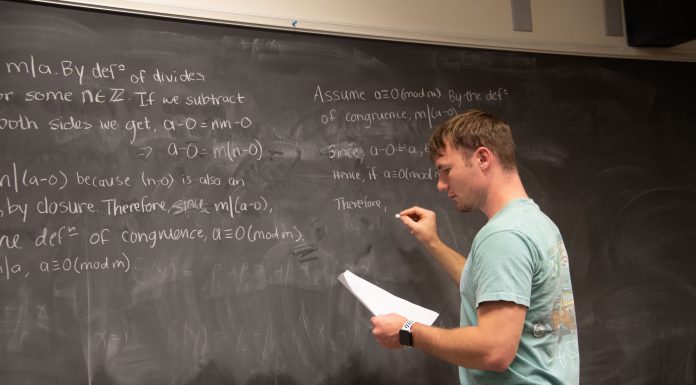 m|a. By defⁿ of divides
for some n∈ℤ. If we subtract
both sides we get, a-0 = nm-0
=> a-0 = m(n-0)
m|(a-0) because (n-0) is also an
by closure. Therefore, since m|(a-0),
the defⁿ of congruence, a≡0(mod m).
m|a, a≡0(mod m).
Assume a≡0(mod m). By the defⁿ
of congruence, m|(a-0)
Since, a-0=a,
Hence, if a≡0(mod
Therefore,